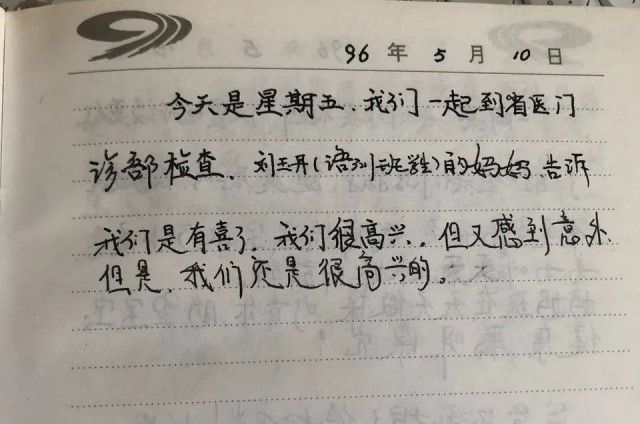 96 年 5 月 10 日
今天是星期五.我们一起到省医门
诊部检查.刘玉丹(语列班学生)的妈妈告诉
我们是有喜了.我们很高兴..但又感到意外.
但是.我们还是很高兴的。